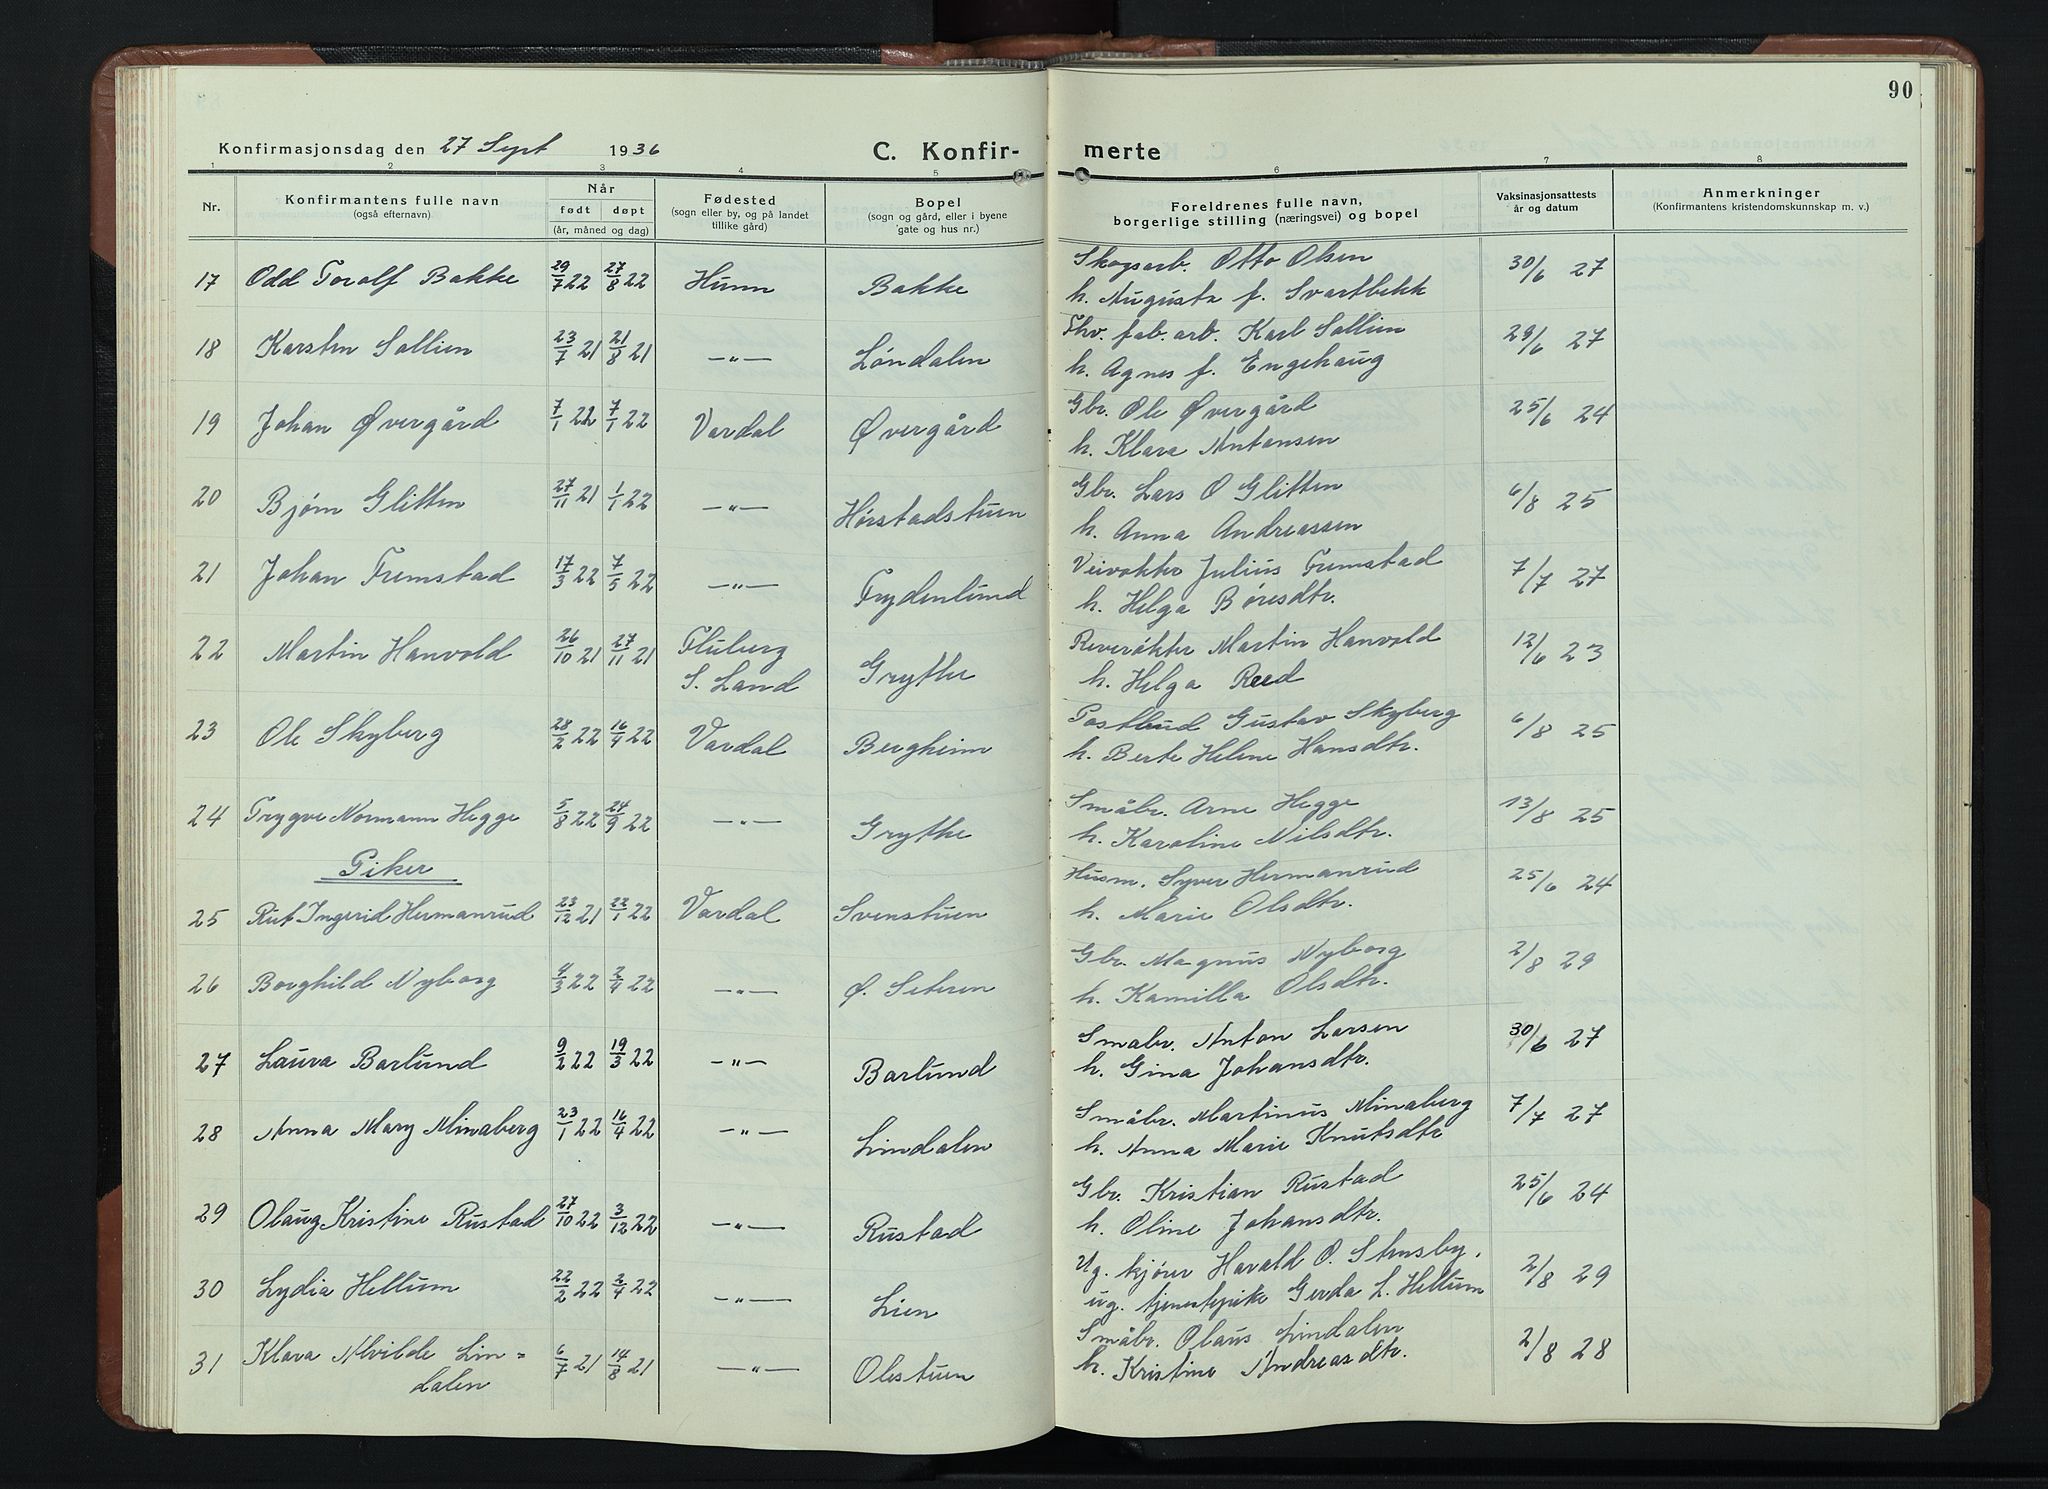 90
Konfirmasjonsdag den 27 Sept 1936
C. Konfir-
merte
1 2 3 4 5 6 7 8
Nr.
Konfirmantens fulle navn
(også efternavn)
Når
født døpt
(år, måned og dag)
Fødested
(sogn eller by, og på landet
tillike gård)
Bopel
(sogn og gård, eller i byene
gate og hus nr.)
Foreldrenes fulle navn,
borgerlige stilling (næringsvei) og bopel
Vaksinasjonsattests
år og datum
Anmerkninger
(Konfirmantens kristendomskunnskap m. v.)
17 Odd Toralf Bakke 29/7 22 27/8 22 Hunn Bakke Skogsarb. Otto Olsen 30/6 27
h. Augusta f. Svartbekk
18 Karsten Sollien 23/7 21 21/8 21 —"— Løndalen Fhv. fab. arb. Karl Sollien 29/6 27
h. Agnes f. Engehaug
19 Johan Øvergård 7/1 22 7/1 22 Vardal Øvergård Gbr. Ole Øvergård 25/6 24
h. Klara Antonsen
20 Bjørn Glitten 27/11 21 1/1 22 —"— Hørstadstuen Gbr. Lars O Glitten 6/8 25
h. Anna Andreassen
21 Johan Fremstad 17/3 22 7/5 22 —"— Frydenlund Veivokter Julius Fremstad 7/7 27
h. Helga Børesdtr.
22 Martin Hanvold 26/10 21 27/11 21 Fluberg Grythe Reverøkter Martin Hanvold 12/6 23
S. Land h. Helga Reed
23 Ole Skyberg 28/2 22 16/4 22 Vardal Bergheim Postbud Gustav Skyberg 6/8 25
h. Berte Helene Hansdtr.
24 Trygve Normann Hegge 5/8 22 24/9 22 —"— Grythe Småbr. Arne Hegge 13/8 25
h. Karoline Nilsdtr.
Piker
25 Rut Ingerid Hermanrud 23/12 21 22/1 22 Vardal Svenstuen Husm. Syver Hermanrud 25/6 24
h. Marie Olsdtr.
26 Borghild Nyborg 4/3 22 2/4 22 —"— Ø. Seteren Gbr. Magnus Nyborg 2/8 29
h. Kamilla Olsdtr.
27 Laura Barlund 9/2 22 19/3 22 —"— Barlund Smabr. Anton Larsen 30/6 27
h. Gina Johansdtr.
28 Anna Mary Minaberg 23/1 22 16/4 22 —"— Lindalen Småbr. Martinus Minaberg 7/7 27
h. Anna Marie Knutsdtr
29 Olaug Kristine Rustad 27/10 22 3/12 22 —"— Rustad Gbr. Kristian Rustad 25/6 24
h. Oline Johansdtr.
30 Lydia Hellum 22/2 22 2/4 22 —"— Lien Ug. kjører Harald O. Stensby, 2/8 29
ug. tjenestepike Gerda L. Hellum
31 Klara Alvilde Lin= 6/7 21 14/8 21 —"— Olestuen Småbr. Olaus Lindalen 2/8 28
dalen h. Kristine Andreasdtr.